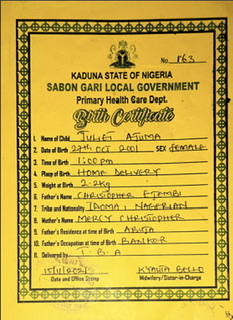 No. 863
KADUNA STATE OF NIGERIA
SABON GARI LOCAL GOVERNMENT
Primary Health Care Dept.
Birth Certificate
1. Name of Child JULIET AJUMA
2. Date of Birth 27th OCT 2001 SEX FEMALE
3. Time of Birth 1:00pm
4. Place of Birth HOME DELIVERY
5. Weight at Birth 2.2kg
6. Father's Name CHRISTOPHER ETEMBI
7. Tribe and Nationality IDOMA NIGERIAN
8. Mother's Name MERCY CHRISTOPHER
9. Father's Residence at time of Birth ABUJA
10. Father's Occupation at time of Birth BANKER
11. Delivered by T.B.A
15/11/2001
Date and Office Stamp
BELLO
Midwifery/Sister-in-Charge